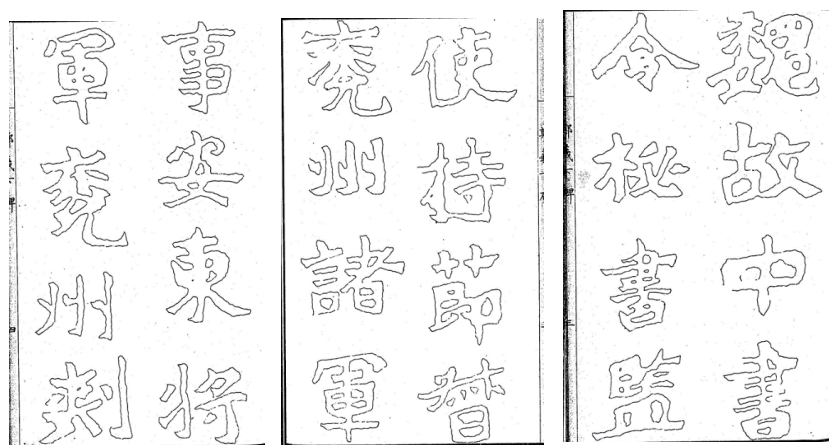 魏故中書
令秘書監
使持節督
兖州諸軍
事安東將
軍兖州刺